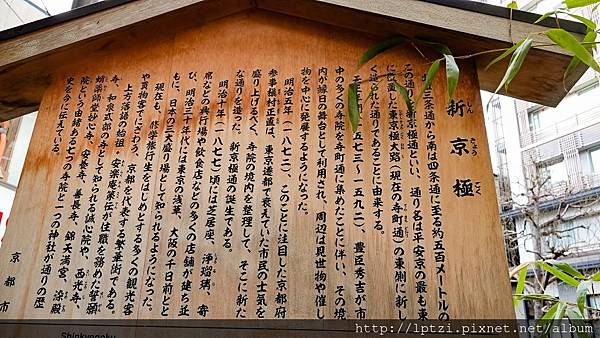 新京極
しん きょう ごく
北は三条通から南は四条通に至る約五百メートルの
この通りを新京極通といい、通り名は平安京の最も東
に位置した東京極大路(現在の寺町通)の東側に新し
く造られた通りであることに由来する。
天正年間(一五七三〜一五九二)、豊臣秀吉が市
中の多くの寺院を寺町通に集めたことに伴い、その境
内が縁日の舞台として利用され、周辺は見世物や催し
物を中心に発展するようになった。
明治五年(一八七二)、このことに注目した京都府
参事槇村正直は、東京遷都で衰えていた市民の士気を
盛り上げるべく、寺院の境内を整理して、そこに新た
な通りを造った。新京極通の誕生である。
明治十年(一八七七)頃には芝居座、浄瑠璃、寄
席などの興行場や飲食店などの多くの店舗が建ち並
び、明治三十年代には東京の浅草、大阪の千日前とと
もに、日本の三大盛り場として知られるようになった。
現在も、修学旅行生をはじめとする多くの観光客
や買物客でにぎわう、京都を代表する繁華街である。
上方落語の始祖・安楽庵策伝が住職を務めた誓願
寺、和泉式部の寺として知られる誠心院や、西光寺、
蛸薬師堂妙心寺、安養寺、善長寺、錦天満宮、染殿
院という由緒ある七つの寺院と一つの神社が通りの歴
史を今に伝えている。
京都市
Shinkyogoku
http://lptzi.pixnet.net/album